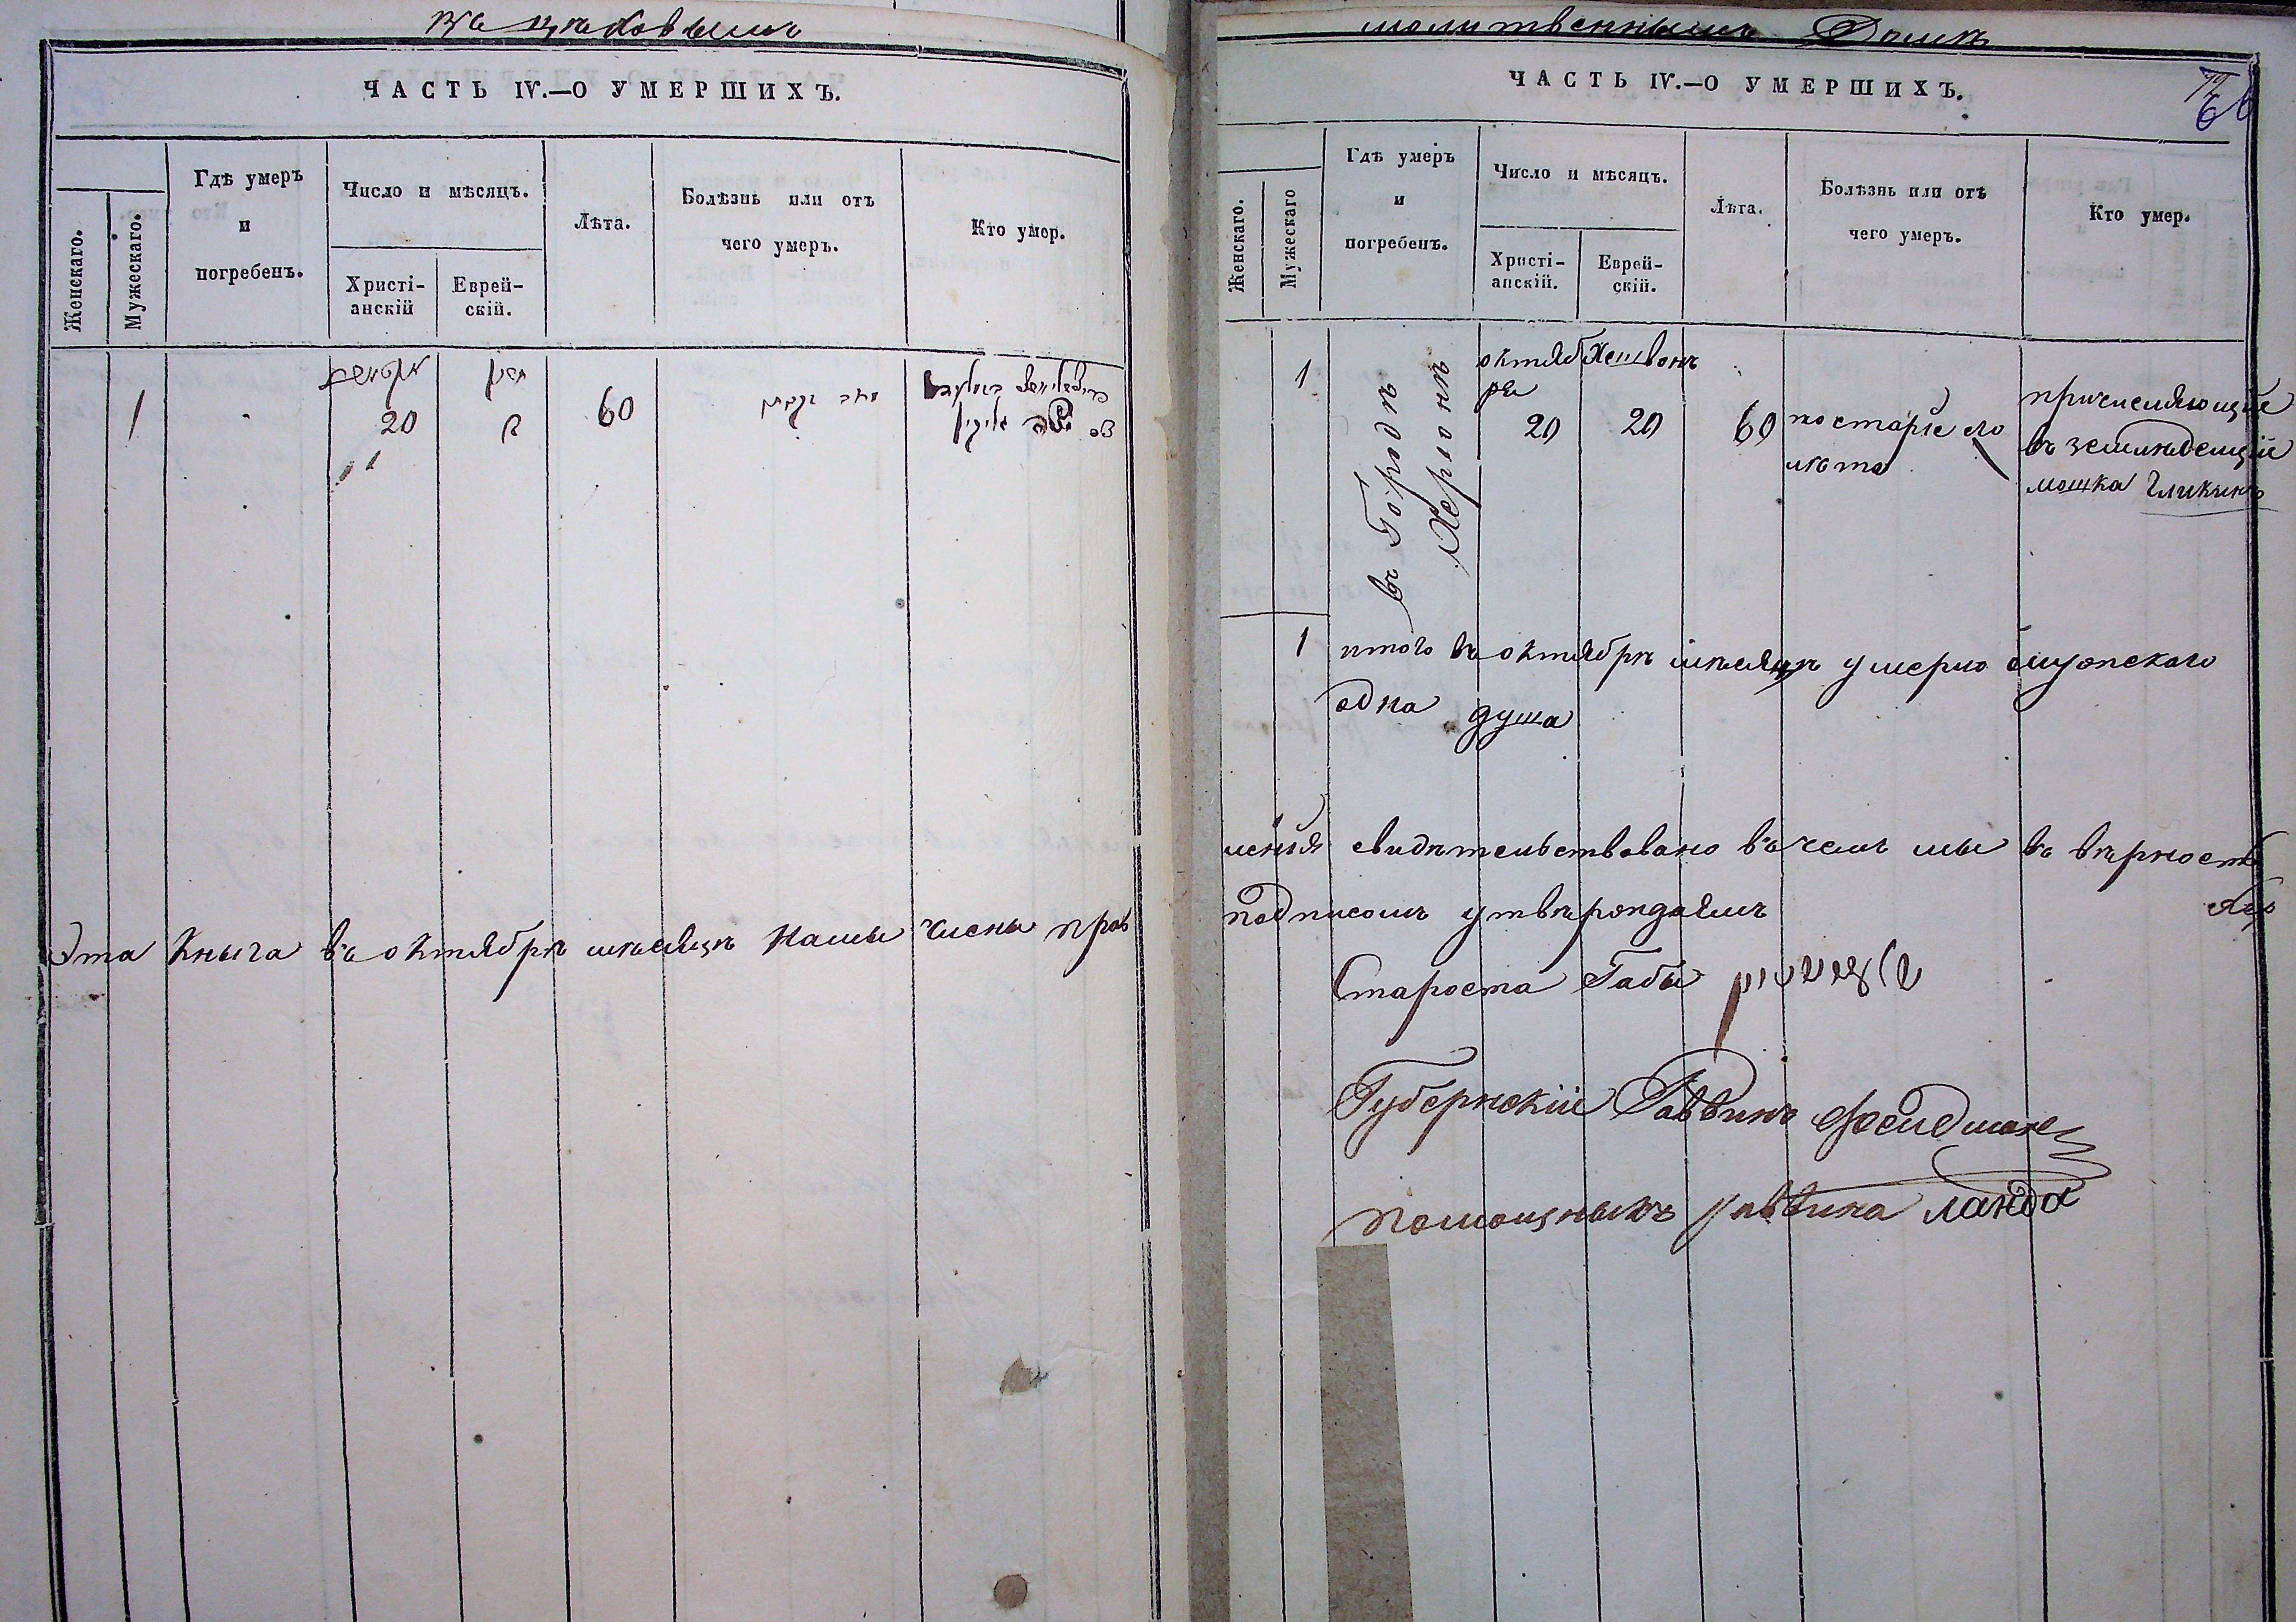 ЧАСТЬ IV.—О УМЕРШИХЪ.
Женскаго.
Мужескаго.
Гдѣ умеръ
и
погребенъ.
Число и мѣсяцъ.
Христі-
анскій
Еврей-
скій.
Лѣта.
Болѣзнь или отъ
чего умеръ.
Кто умер.
1
20
60
Эта Кныга въ октябрѣ мѣсяцѣ намы члены прав
молитвеннымъ Домѣ
ЧАСТЬ IV.—О УМЕРШИХЪ.
Женскаго.
Мужескаго
Гдѣ умеръ
и
погребенъ.
Число и мѣсяцъ.
Христі-
анскій.
Еврей-
скій.
Лѣта.
Болѣзнь или отъ
чего умеръ.
Кто умер.
1
въ Городѣ
Херсонѣ
октяб
ря
20
Хешвонъ
20
60
по старіе его
лѣта
причисляющіе
въ земледелціе
мошка Гликинъ
1 итого въ октябрѣ мѣсяцѣ умерло мужескаго
одна душа
ленія свидѣтельствовано въ чемъ мы въ вѣрность
подписомъ утвѣрождаемъ
Староста Габы
Губернскій Раввинъ Фейдман
помощныкъ раввина Ланда